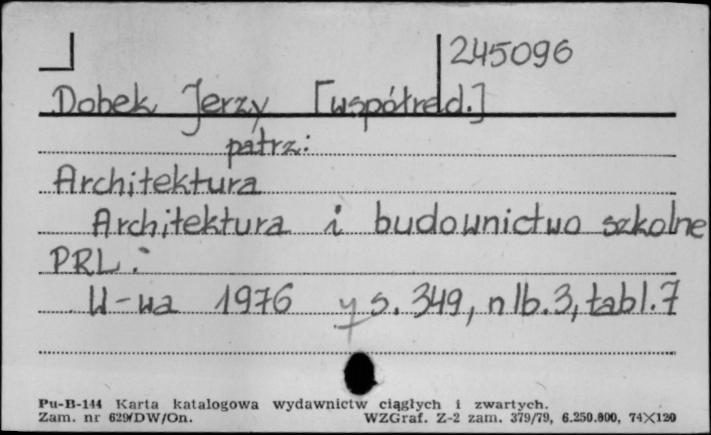 245096
Dobek Jerzy [współred.]
patrz:
Architektura
Architektura i budownictwo szkolne
PRL.
W-wa 1976 s. 349, nlb. 3, tabl. 7
Pu-B-144 Karta katalogowa wydawnictw ciągłych i zwartych.
Zam. nr 629/DW/On. WZGraf. Z-2 zam. 379/79, 6.250.800, 74×120